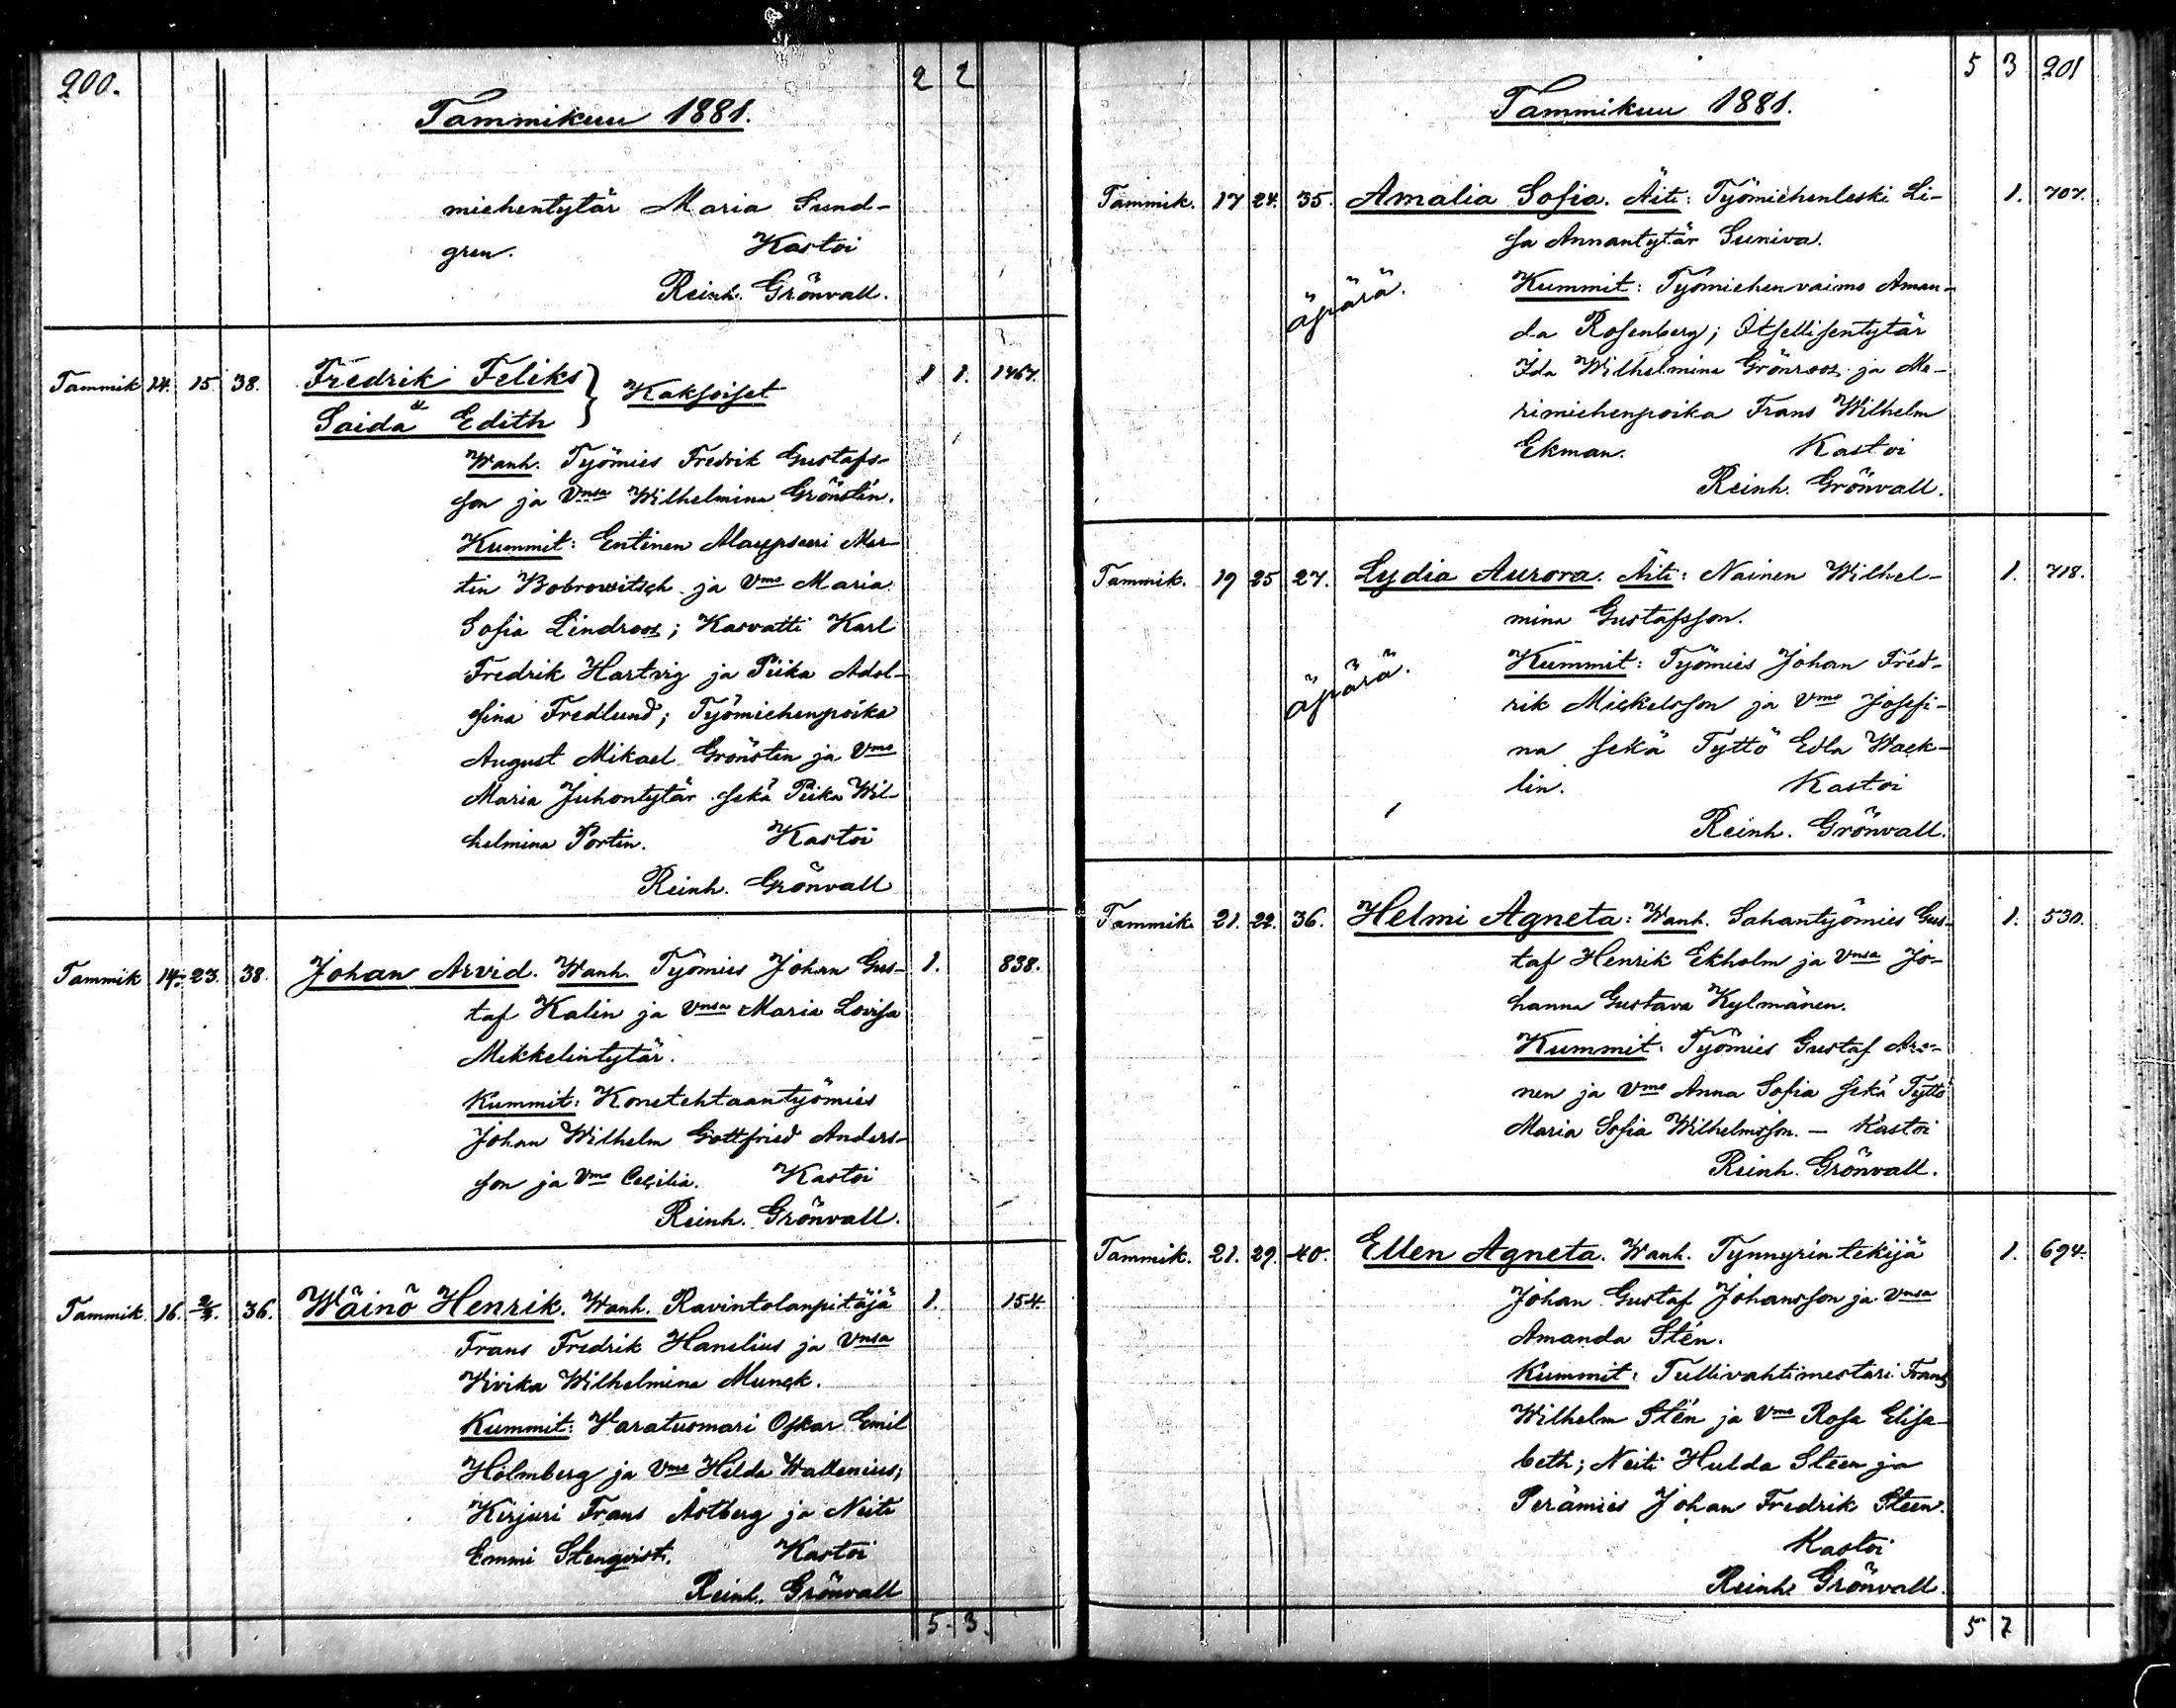 200. 2 2
Tammikuu 1881.
miehentytär Maria Sund-
gren. Kastoi
Reinh. Grönvall.
Tammik 14. 15. 38. Fredrik Feliks } Kaksoiset 1 1. 1467.
Saida Edith
Wanh. Työmies Fredrik Gustafs-
son ja Vmsa Wilhelmina Grönstén.
Kummit: Entinen Mar-
tin Bobrowitsch ja Vmo Maria
Sofia Lindroos; Kasvatti Karl
Fredrik Hartvig ja Piika Adol-
fina Fredlund; Työmiehenpoika
August Mikael Grönsten ja Vmo
Maria Juhontytär sekä Piika Wil-
helmina Portin. Kastoi
Reinh. Grönvall
Tammik 14. 23. 38. Johan Arvid. Wanh. Työmies Johan Gus- 1. 838.
taf Kalin ja Vmsa Maria Lovisa
Mikkelintytär.
Kummit: Konetehtaantyömies
Johan Wilhelm Gottfried Anders-
son ja Vmo Cecilia. Kastoi
Reinh. Grönvall.
Tammik. 16. 36. Wäinö Henrik. Wanh. Ravintolanpitäjä 1. 154.
Frans Fredrik Hanelius ja Vmsa
Vivika Wilhelmina Munck.
Kummit: Varatuomari Oskar Emil
Holmberg ja Vmo Hilda Wallenius;
Kirjuri Frans Åstberg ja Neiti
Emmi Stenqvist. Kastoi
Reinh. Grönvall
5. 3.
5 3 201
Tammikuu 1881.
Tammik. 17 24. 35. Amalia Sofia. Äiti: Työmiehenleski Li- 1. 707.
sa Annantytär Suniva.
äpärä. Kummit: Työmiehenvaimo Aman-
da Rosenberg; Itsellisentytär
Ida Wilhelmina Grönroos ja Me-
rimiehenpoika Frans Wilhelm
Ekman. Kastoi
Reinh. Grönvall.
Tammik. 19 25 27. Lydia Aurora. Äiti: Nainen Wilhel- 1. 718.
mina Gustafsson.
äpärä. Kummit: Työmies Johan Fred-
rik Mickelsson ja Vmo Josefi-
na sekä Tyttö Edla Wack-
lin. Kastoi
Reinh. Grönvall.
Tammik. 21. 22. 36. Helmi Agneta: Wanh. Sahantyömies Gus- 1. 530.
taf Henrik Ekholm ja Vmsa Jo-
hanna Gustava Kylmänen.
Kummit: Työmies Gustaf
nen ja Vmo Anna Sofia sekä Tyttö
Maria Sofia Wilhelmsson. — Kastoi
Reinh. Grönvall.
Tammik. 21. 29. 40. Ellen Agneta. Wanh. Tynnyrintekijä 1. 694.
Johan Gustaf Johansson ja Vmsa
Amanda Stén.
Kummit: Tullivahtimestari Frans
Wilhelm Stén ja Vmo Rosa Elisa-
beth; Neiti Hulda Steen ja
Perämies Johan Fredrik Steen.
Kastoi
Reinh. Grönvall.
5 7